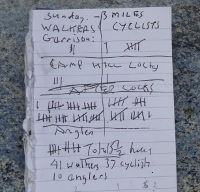 Sunday. - 3 MILES
WALKERS CYCLISTS
Garrison:
CAMP HILL LOCKS
AFTER LOCKS
Anglers
Total 2 hours
41 walkers 37 cyclists
10 anglers